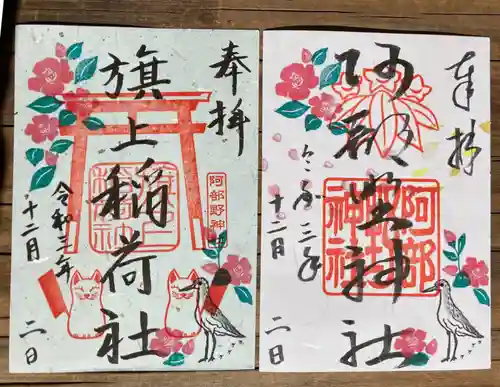 奉拝
旗上稲荷社
阿部野神
令和三年
十二月
二日
奉拝
阿部野神社
令和三年
十二月
二日
阿部
神社